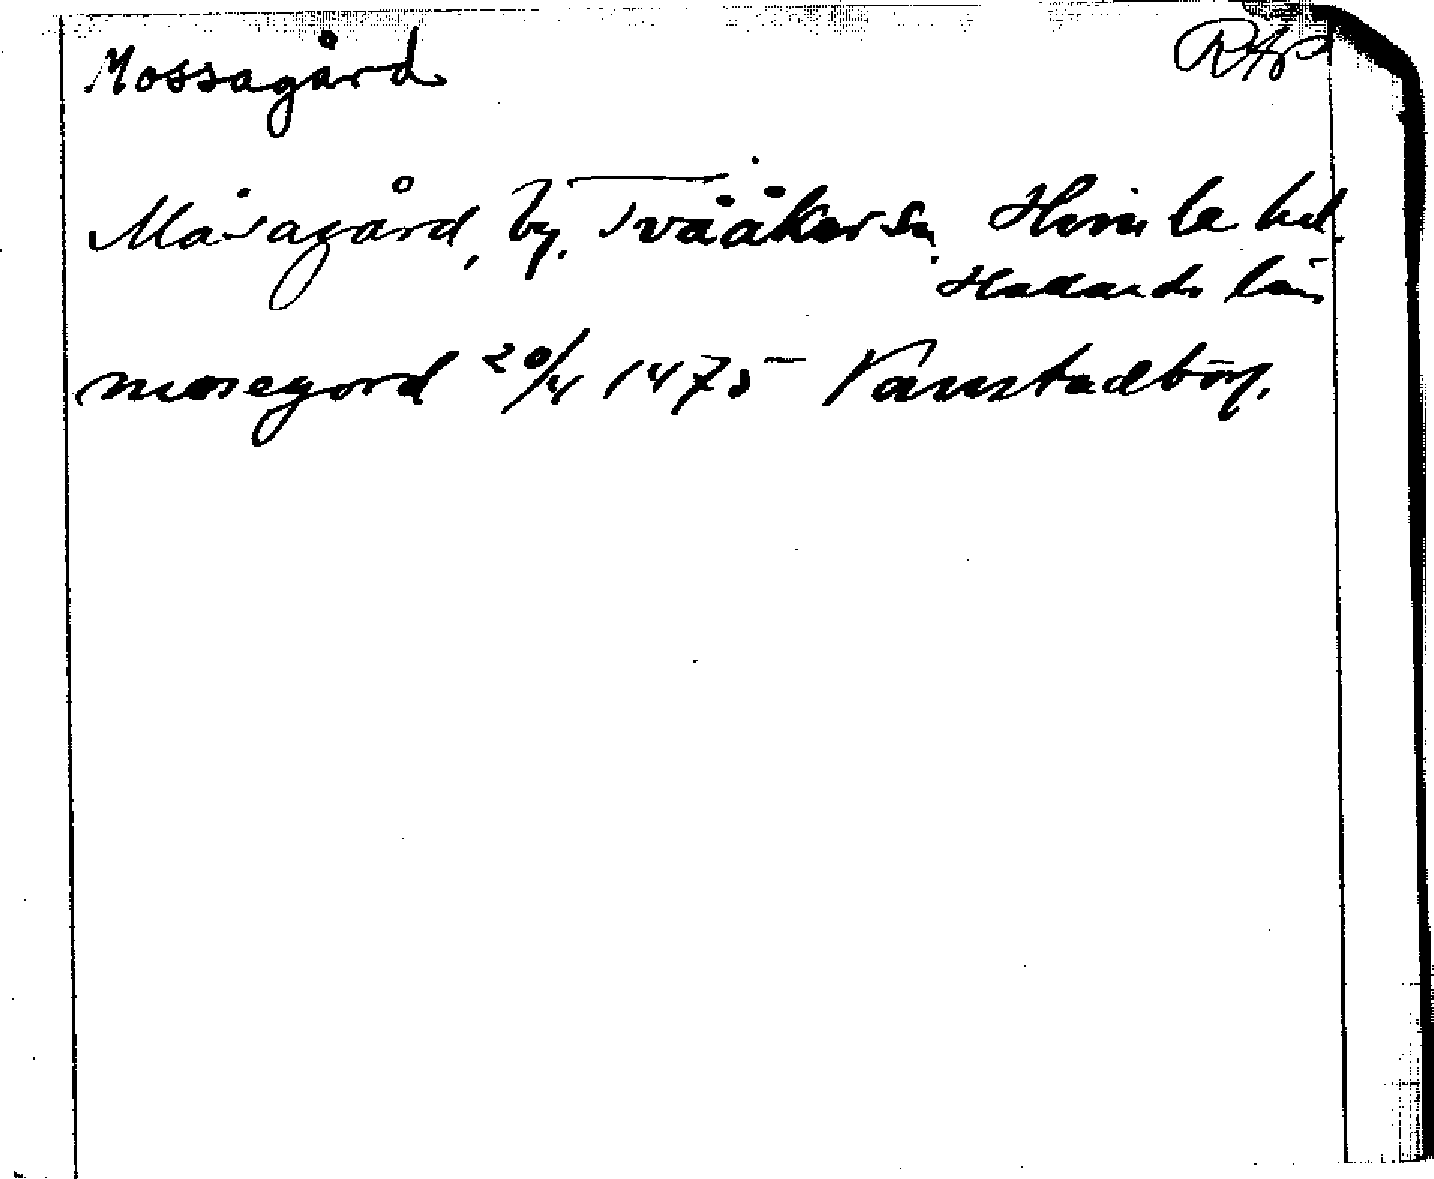 Mossagård RAP
Måsagård, by, Tvååker sn, Himle hd.
Hallands län
mosegord 20/4 1475